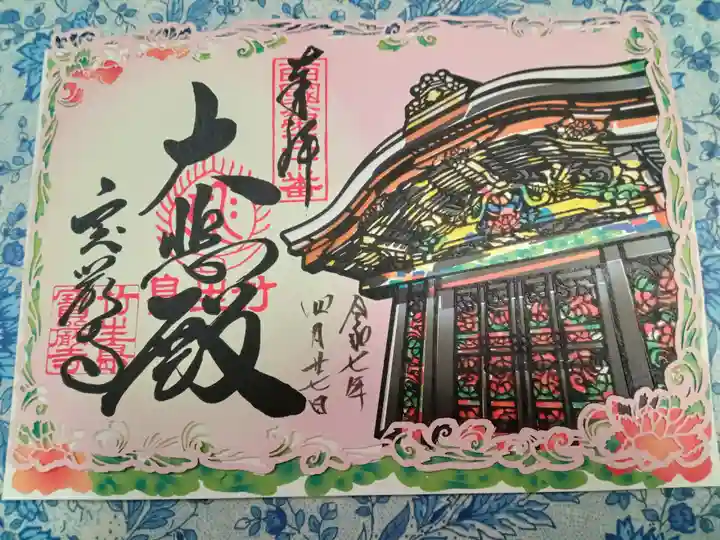 奉拝
大悲殿
宝厳寺
令和七年
四月廿七日
竹生島
寶嚴寺